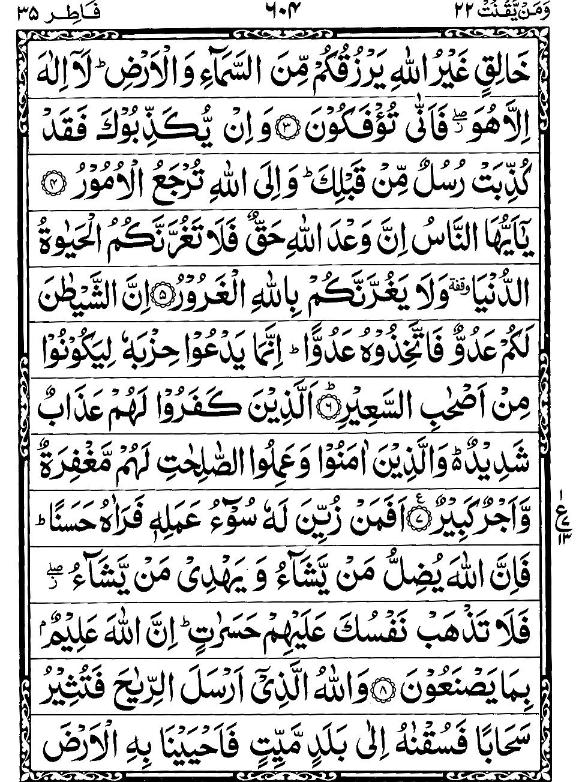 وَمَنْ يَّقْنُتْ ٢٢ ٦٠٤ فَاطِر ٣٥
خَالِقٍ غَيْرُ اللّٰهِ يَرْزُقُكُمْ مِّنَ السَّمَآءِ وَالْاَرْضِ ؕ لَاۤ اِلٰهَ
اِلَّا هُوَ ۖ٘ فَاَنّٰى تُؤْفَكُوْنَ ۝٣ وَاِنْ يُّكَذِّبُوْكَ فَقَدْ
كُذِّبَتْ رُسُلٌ مِّنْ قَبْلِكَ ؕ وَاِلَى اللّٰهِ تُرْجَعُ الْاُمُوْرُ ۝٤
يٰۤاَيُّهَا النَّاسُ اِنَّ وَعْدَ اللّٰهِ حَقٌّ فَلَا تَغُرَّنَّكُمُ الْحَيٰوةُ
الدُّنْيَا وقفة وَلَا يَغُرَّنَّكُمْ بِاللّٰهِ الْغَرُوْرُ ۝٥ اِنَّ الشَّيْطٰنَ
لَكُمْ عَدُوٌّ فَاتَّخِذُوْهُ عَدُوًّا ؕ اِنَّمَا يَدْعُوْا حِزْبَهٗ لِيَكُوْنُوْا
مِنْ اَصْحٰبِ السَّعِيْرِ ۝٦ؕ اَلَّذِيْنَ كَفَرُوْا لَهُمْ عَذَابٌ
شَدِيْدٌ ۬ؕ وَالَّذِيْنَ اٰمَنُوْا وَعَمِلُوا الصّٰلِحٰتِ لَهُمْ مَّغْفِرَةٌ
وَّاَجْرٌ كَبِيْرٌ ۝٧ۧ اَفَمَنْ زُيِّنَ لَهٗ سُوْٓءُ عَمَلِهٖ فَرَاٰهُ حَسَنًا ؕ
١ ع ٧ ١٣
فَاِنَّ اللّٰهَ يُضِلُّ مَنْ يَّشَآءُ وَيَهْدِىْ مَنْ يَّشَآءُ ۖ٘
فَلَا تَذْهَبْ نَفْسُكَ عَلَيْهِمْ حَسَرٰتٍ ؕ اِنَّ اللّٰهَ عَلِيْمٌۢ
بِمَا يَصْنَعُوْنَ ۝٨ وَاللّٰهُ الَّذِىْۤ اَرْسَلَ الرِّيٰحَ فَتُثِيْرُ
سَحَابًا فَسُقْنٰهُ اِلٰى بَلَدٍ مَّيِّتٍ فَاَحْيَيْنَا بِهِ الْاَرْضَ